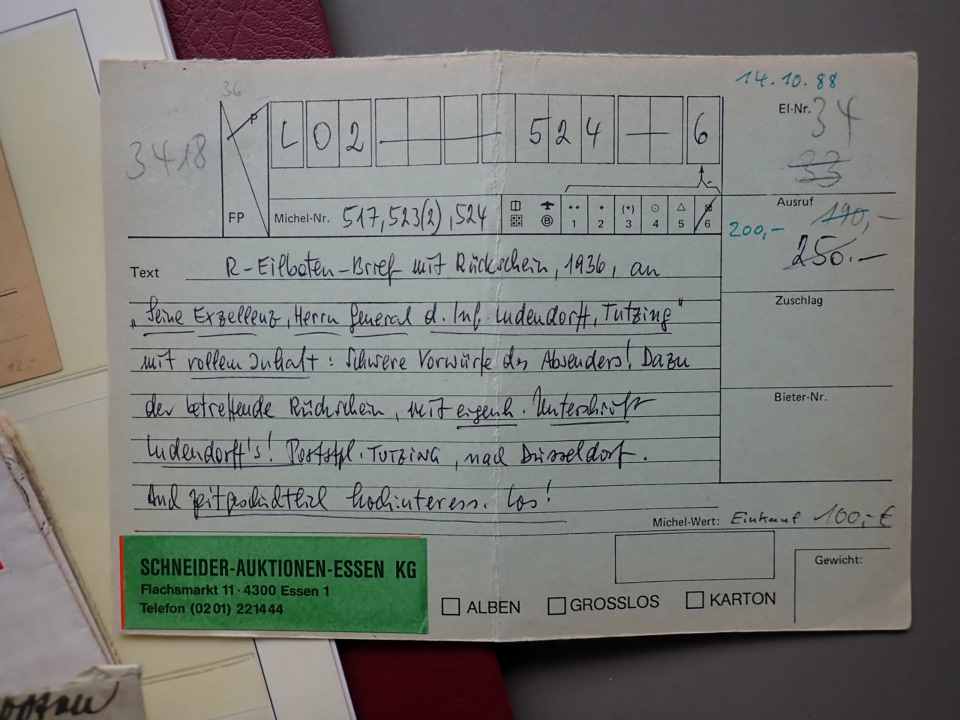 14.10.88
36
P
L 0 2 — 5 2 4 — 6
El-Nr. 34
33
3418
FP
Michel-Nr. 517, 523(2), 524
** * (*) ⊙ △
1 2 3 4 5 6
Ausruf 190,-
200,-
250.-
Text R-Eilboten-Brief mit Rückschein, 1936, an
"Seine Exzellenz, Herrn General d. Inf. Ludendorff, Tutzing"
mit vollem Inhalt: Schwere Vorwürfe des Absenders! Dazu
der betreffende Rückschein, mit eigenh. Unterschrift
Ludendorff's! Poststpl. TUTZING, nach Düsseldorf.
Auch zeitgeschichtlich hochinteress. Los!
Zuschlag
Bieter-Nr.
Michel-Wert: Einkauf 100,-€
Gewicht:
SCHNEIDER-AUKTIONEN-ESSEN KG
Flachsmarkt 11 · 4300 Essen 1
Telefon (02 01) 22 14 44
ALBEN GROSSLOS KARTON